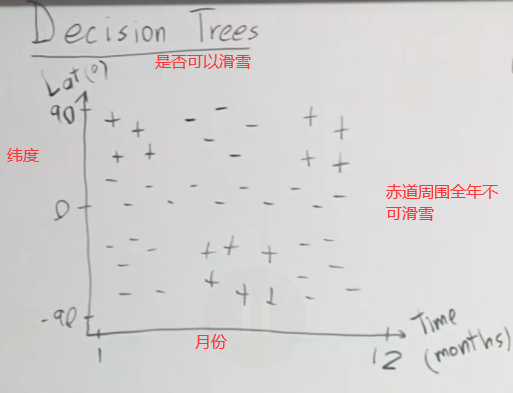 Decision Trees
是否可以滑雪
Lat(°)
90
纬度
0
赤道周围全年不
可滑雪
-90
月份
1
12
Time
(months)